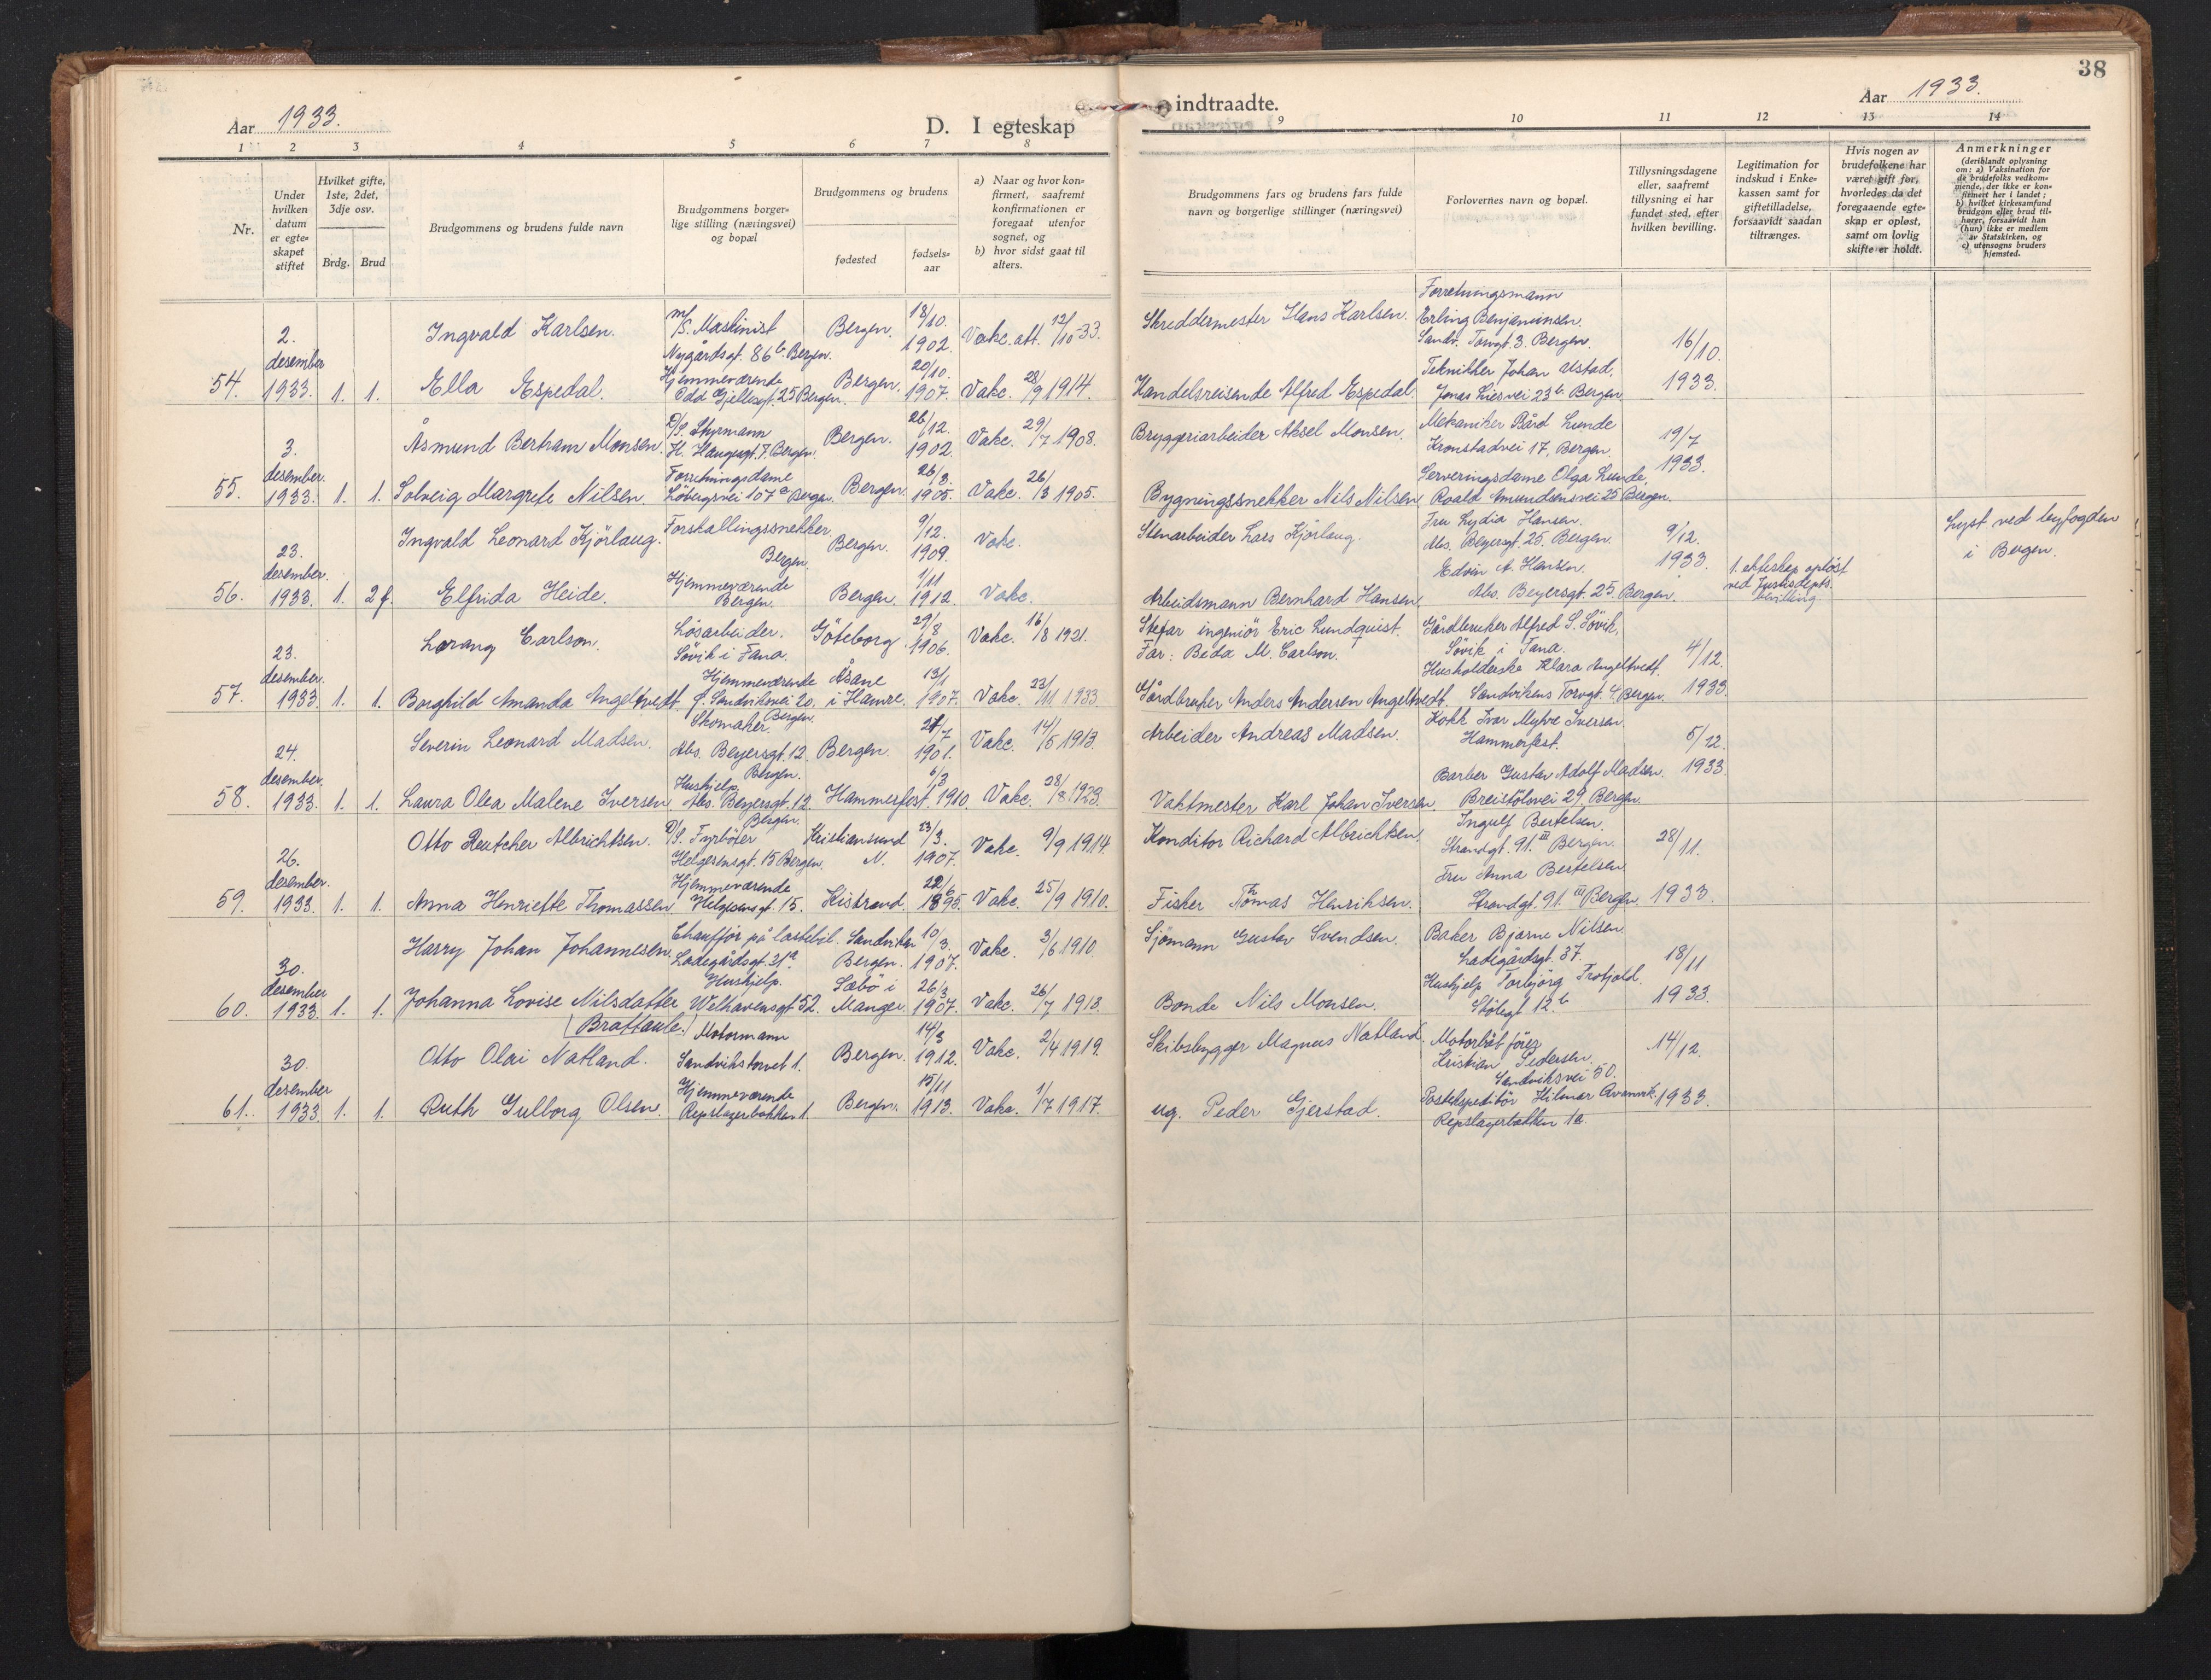 38
Aar 1933.
D. I egteskap
indtraadte.
Aar 1933.
1 2 3 4 5 6 7 8
9 10 11 12 13 14
Nr.
Under
hvilken
datum
er egte-
skapet
stiftet
Hvilket gifte,
1ste, 2det,
3dje osv.
Brdg. Brud
Brudgommens og brudens fulde navn
Brudgommens borger-
lige stilling (næringsvei)
og bopæl
Brudgommens og brudens
fødested
fødsels-
aar
a) Naar og hvor kon-
firmert, saafremt
konfirmationen er
foregaat utenfor
sognet, og
b) hvor sidst gaat til
alters.
Brudgommens fars og brudens fars fulde
navn og borgerlige stillinger (næringsvei)
Forlovernes navn og bopæl.
Tillysningsdagene
eller, saafremt
tillysning ei har
fundet sted, efter
hvilken bevilling.
Legitimation for
indskud i Enke-
kassen samt for
giftetilladelse,
forsaavidt saadan
tiltrænges.
Hvis nogen av
brudefolkene har
været gift før,
hvorledes da det
foregaaende egte-
skap er opløst,
samt om lovlig
skifte er holdt.
Anmerkninger
(deriblandt oplysning
om: a) Vaksination for
de brudefolks vedkom-
mende, der ikke er kon-
firmert her i landet;
b) hvilket kirkesamfund
brudgom eller brud til-
hører, forsaavidt han
(hun) ikke er medlem
av Statskirken, og
c) utensogns bruders
hjemsted.
54. 2. desember 1933. 1. 1.
Ingvald Karlsen.
m/S. Maskinist
Nygårdsgt. 86 b Bergen.
Bergen. 18/10. 1902. Vakc. att. 12/10-33.
Skreddermester Hans Karlsen.
Forretningsmann
Erling Benjaminsen.
Sandv. Torvgt. 3. Bergen.
16/10. 1933.
Ella Espedal.
Hjemmeværende
Odd Gjellesgt. 25 Bergen.
Bergen. 20/10. 1907. Vakc. 28/9 1914.
Handelsreisende Alfred Espedal.
Tekniker Johan Alstad,
Jonas Liesvei 23 b Bergen
55. 3. desember. 1933. 1. 1.
Åsmund Bertram Monsen.
D/S. Styrmann
H. Haugesgt. 7. Bergen.
Bergen. 26/12. 1902. Vakc. 29/7 1908.
Bryggeriarbeider Aksel Monsen.
Mekaniker Bård Lunde
Kronstadvei 17, Bergen.
19/7 1933.
Solveig Margrete Nilsen.
Forretningsdame
Löbergsvei 107 a Bergen.
Bergen. 26/8. 1905. Vakc. 26/3 1905.
Bygningssnekker Nils Nilsen.
Serveringsdame Olga Lunde,
Roald Amundsensvei 25 Bergen.
56. 23. desember. 1933. 1. 2 f.
Ingvald Leonard Kjörlaug.
Forskallingssnekker
Bergen.
Bergen. 9/12. 1909. Vakc.
Stenarbeider Lars Kjörlaug.
Fru Lydia Hansen.
Abs. Beyersgt. 25. Bergen.
9/12. 1933.
Lyst ved byfogden
i Bergen.
Elfrida Heide.
Hjemmeværende
Bergen.
Bergen. 1/11 1912. Vakc.
Arbeidsmann Bernhard Hansen.
Edvin A. Hansen.
Abs. Beyersgt. 25. Bergen.
1. ekteskap opløst
ved Justisdepts.
bevilling.
57. 23. desember. 1933. 1. 1.
Lorang Carlson.
Løsarbeider.
Søvik i Fana.
Göteborg. 29/8 1906. Vakc. 16/8 1921.
Stefar ingeniör Eric Lundquist.
Far: Beda M. Carlson.
Gårdbruker Alfred S. Søvik,
Søvik i Fana.
4/12. 1933.
Borghild Amanda Angeltvedt
Hjemmeværende
f. Sandviksvei 20. Bergen.
Åsane
i Hamre. 13/1 1907. Vakc. 23/11 1933.
Gårdbruker Anders Andersen Angeltvedt.
Husholderske Klara Angeltvedt.
Sandvikens Torvgt. 4. Bergen.
58. 24. desember. 1933. 1. 1.
Severin Leonard Madsen.
Skomaker.
Abs. Beyersgt. 12. Bergen.
Bergen. 21/7 1901. Vakc. 14/5 1913.
Arbeider Andreas Madsen.
Kokk Ivar Myhre Iversen
Hammerfest.
5/12. 1933.
Laura Olea Malene Iversen
Hushjelp.
Abs. Beyersgt. 12. Bergen.
Hammerfest. 6/3 1910. Vakc. 28/8 1923.
Vaktmester Karl Johan Iversen.
Barber Gustav Adolf Madsen.
Breistölsvei 29, Bergen.
59. 26. desember. 1933. 1. 1.
Otto Reutcher Albrichtsen.
D/S. Fyrböter
Helgesensgt. 15 Bergen.
Kristiansund
N. 23/3. 1907. Vakc. 9/9 1914.
Konditor Richard Albrichtsen.
Ingulf Bertelsen.
Strandgt. 91. III Bergen.
28/11. 1933.
Anna Henriette Thomassen
Hjemmeværende
Helgesensgt. 15.
Kistrand. 22/6 1895. Vakc. 25/9 1910.
Fisker Thomas Henriksen.
Fru Anna Bertelsen
Strandgt. 91. III Bergen.
60. 30. desember 1933. 1. 1.
Harry Johan Johannesen.
Chauffør på lastebil.
Ladegårdsgt. 31 a.
Sandviken
Bergen. 10/3. 1907. Vakc. 3/6 1910.
Sjömann Gustav Svendsen.
Baker Bjarne Nilsen
Ladegårdsgt. 37.
18/11 1933.
Johanna Lovise Nilsdatter
(Brattaule.)
Hushjelp.
Welhavensgt 52.
Sæbö i
Manger. 26/3 1907. Vakc. 26/7 1913.
Bonde Nils Monsen.
Hushjelp Torbjörg
Stölegt 12 b
61. 30. desember 1933. 1. 1.
Otto Olai Natland.
Motormann
Sandvikstorvet 1.
Bergen. 14/3 1912. Vakc. 2/4 1919.
Skibsbygger Magnus Natland.
Motorbåtfører
Kristian Pedersen.
Sandviksvei 50.
14/12. 1933.
Ruth Gulborg Olsen.
Hjemmeværende
Repslagerbakken 1.
Bergen. 15/11 1913. Vakc. 1/7 1917.
ug. Peder Gjerstad.
Postekspeditör Hilmar
Repslagerbakken 1a.